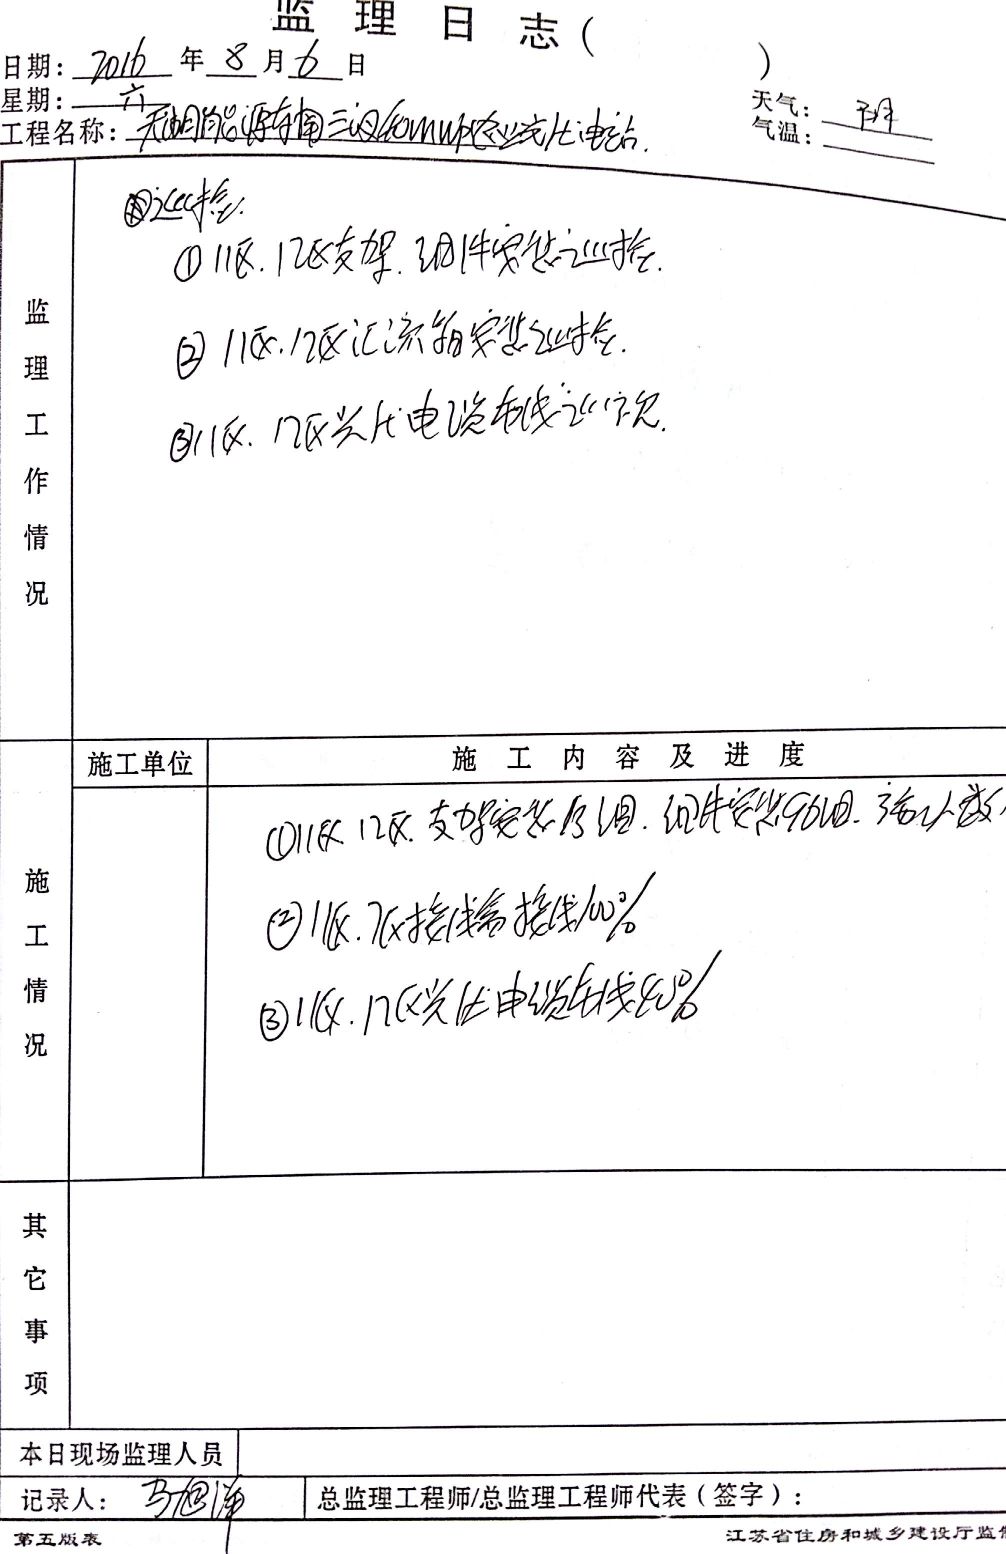 监理日志(
)
日期: 2016 年 8 月 6 日
星期: 六
天气: 晴
气温:
工程名称: 光伏电站.
监理工作情况
巡检.
①11区.12区支架.组件安装巡检.
②11区.12区汇流箱安装巡检.
③11区.12区光伏电缆布线巡视.
施工单位
施工内容及进度
施工情况
①11区.12区.支架安装 组.组件安装96组.
②11区. 接线 接线100%
③11区.12区光伏电缆布线40%
其它事项
本日现场监理人员
记录人: 马旭
总监理工程师/总监理工程师代表(签字):
第五版表
江苏省住房和城乡建设厅监